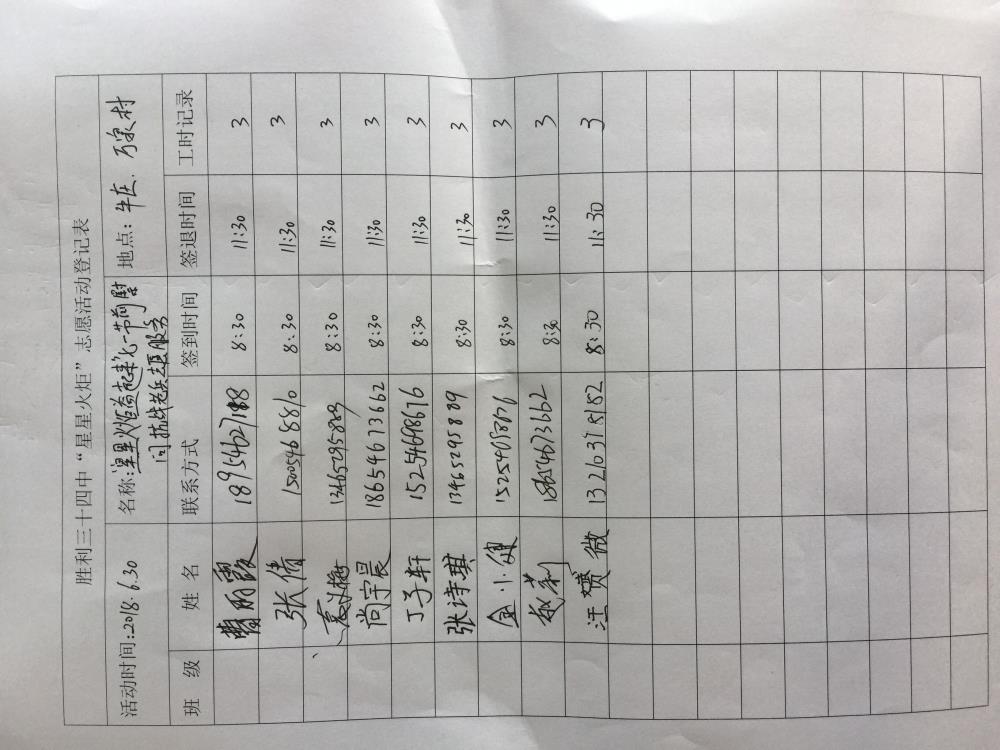 胜利三十四中“星星火炬”志愿活动登记表
活动时间:2018.6.30 名称:星星火炬益起来七一节前慰问抗战老兵志愿服务 地点: 牛庄. 万泉村
班 级 姓 名 联系方式 签到时间 签退时间 工时记录
曹丽霞 18954627188 8:30 11:30 3
张倩 15005468810 8:30 11:30 3
13465295889 8:30 11:30 3
尚宇晨 18654673662 8:30 11:30 3
丁子轩 15254698676 8:30 11:30 3
张诗琪 13465295889 8:30 11:30 3
金小健 8:30 11:30 3
莉 18654673662 8:30 11:30 3
汪赟微 13263718182 8:30 11:30 3